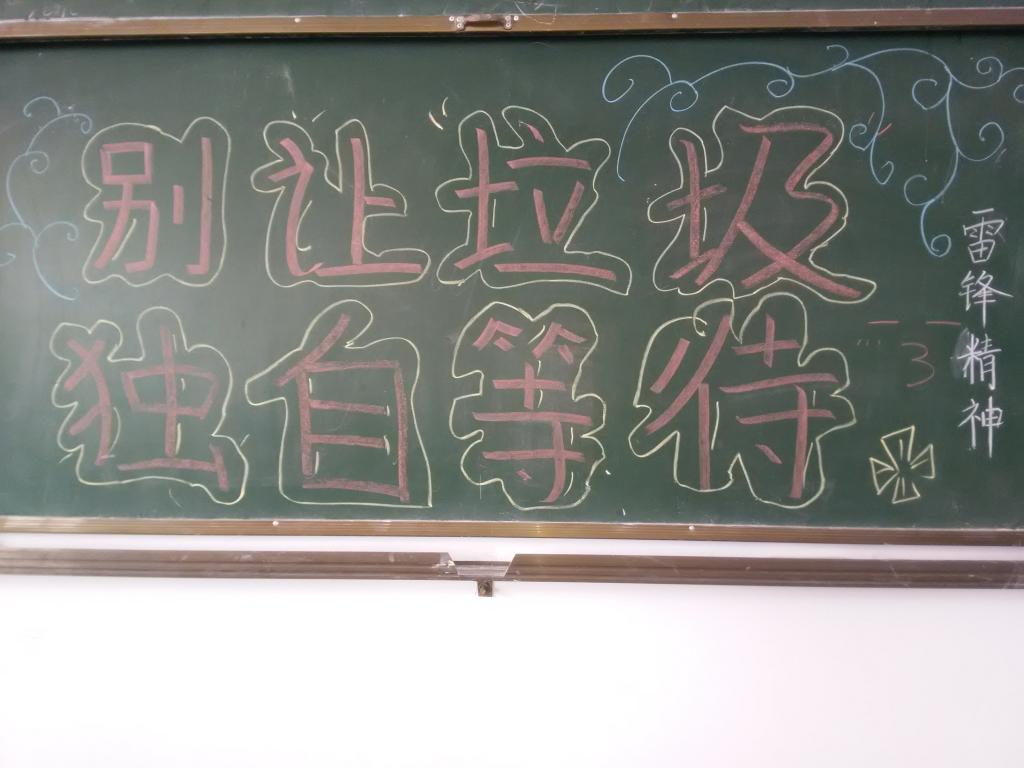 别让垃圾
独自等待
雷锋精神
3